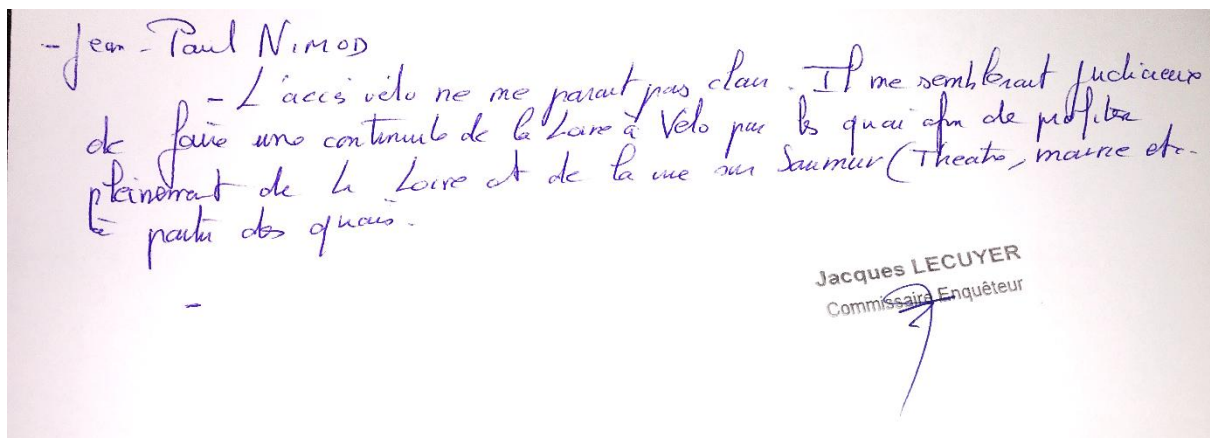 - Jean-Paul NIMOD
- L'accès vélo ne me parait pas clair. Il me semblerait judicieux
de faire une continuité de la Loire à Vélo par les quai afin de profiter
pleinement de la Loire et de la vue sur Saumur (Theatre, mairie etc.
à partir des quais.
-
Jacques LECUYER
Commissaire Enquêteur